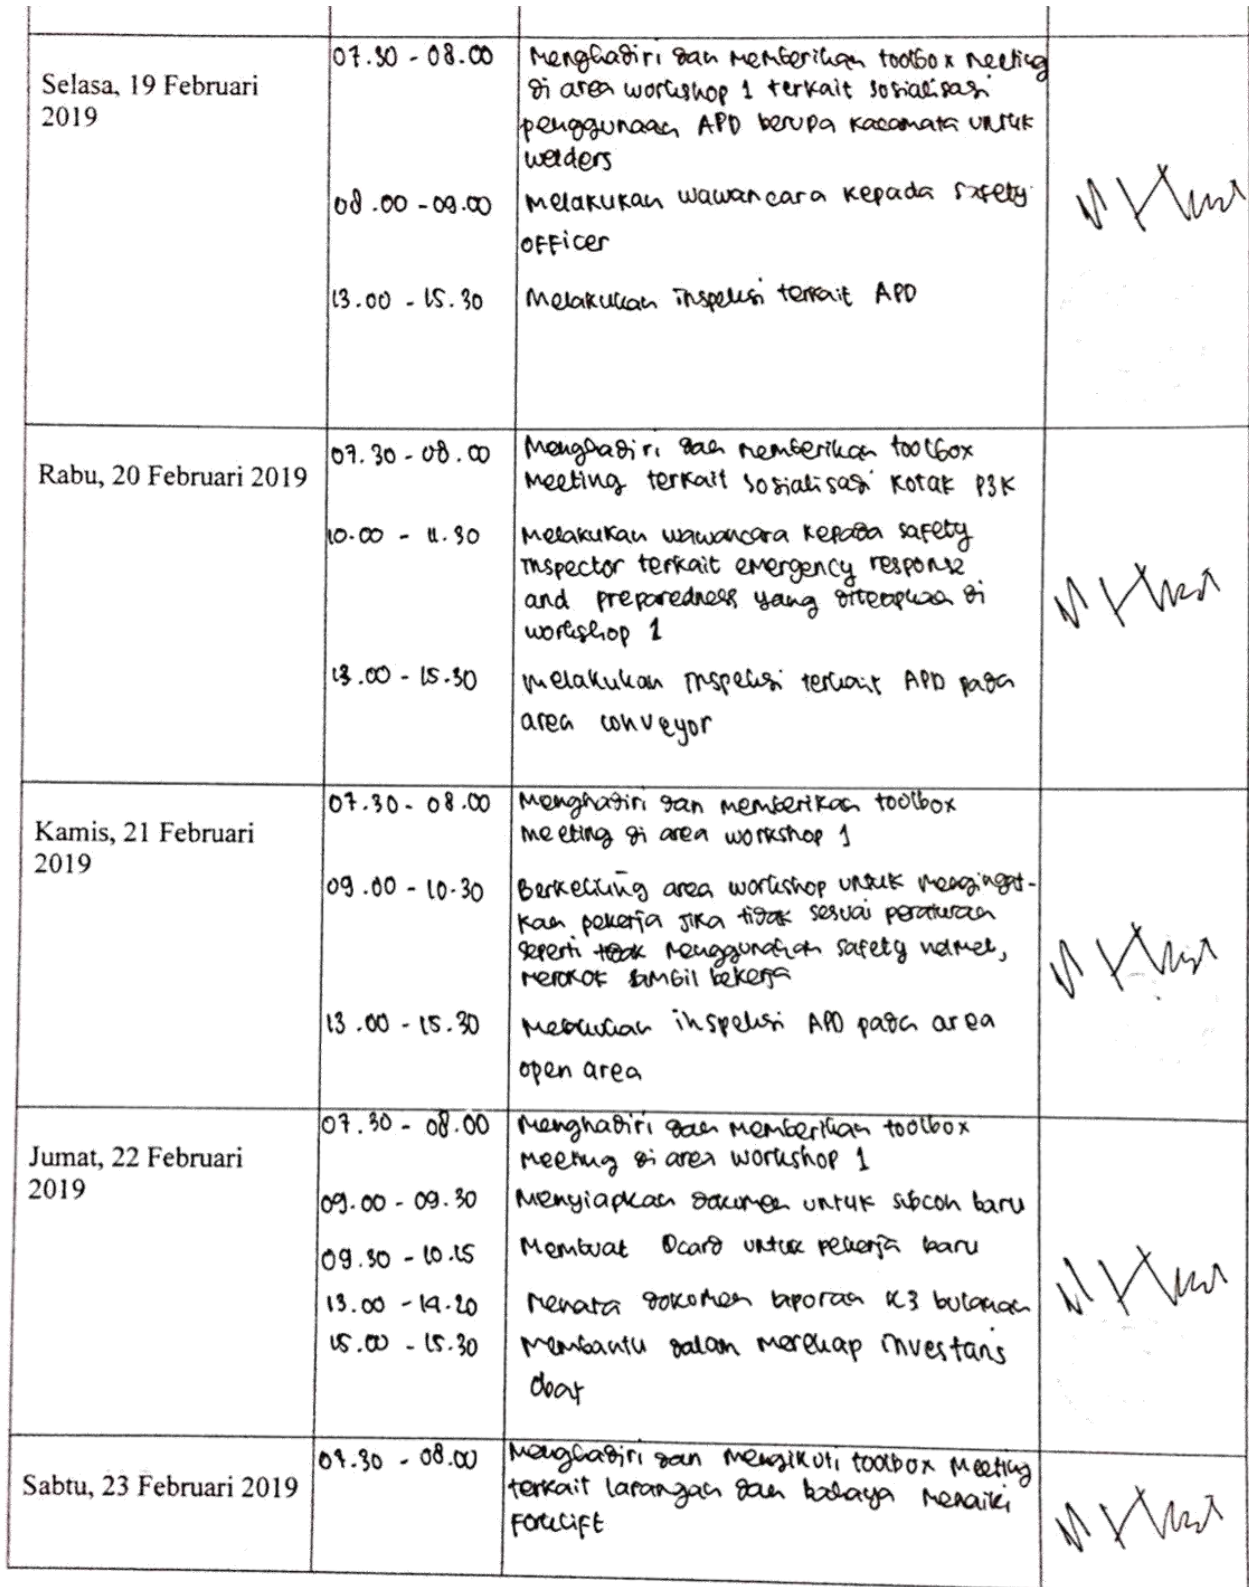 Selasa, 19 Februari
2019
07.30 - 08.00
Menghadiri dan memberikan toolbox meeting
di area workshop 1 terkait sosialisasi
penggunaan APD berupa kacamata untuk
welders
08.00 - 09.00
Melakukan wawancara kepada safety
officer
13.00 - 15.30
Melakukan inspeksi terkait APD
Rabu, 20 Februari 2019
07.30 - 08.00
Menghadiri dan memberikan toolbox
Meeting terkait sosialisasi kotak P3K
10.00 - 11.30
Melakukan wawancara kepada safety
inspector terkait emergency response
and preparedness yang diterapkan di
workshop 1
13.00 - 15.30
Melakukan inspeksi terkait APD pada
area conveyor
Kamis, 21 Februari
2019
07.30 - 08.00
Menghadiri dan memberikan toolbox
meeting di area workshop 1
09.00 - 10.30
Berkeliling area workshop untuk mengingat-
kan pekerja jika tidak sesuai peraturan
seperti tidak menggunakan safety helmet,
merokok sambil bekerja
13.00 - 15.30
Melakukan inspeksi APD pada area
open area
Jumat, 22 Februari
2019
07.30 - 08.00
Menghadiri dan memberikan toolbox
meeting di area workshop 1
09.00 - 09.30
Menyiapkan dokumen untuk subcon baru
09.30 - 10.15
Membuat Dcard untuk pekerja baru
13.00 - 14.20
Menata dokumen laporan K3 bulanan
15.00 - 15.30
Membantu dalam merekap investaris
obat
Sabtu, 23 Februari 2019
07.30 - 08.00
Menghadiri dan mengikuti toolbox meeting
terkait larangan dan bahaya menaiki
forklift